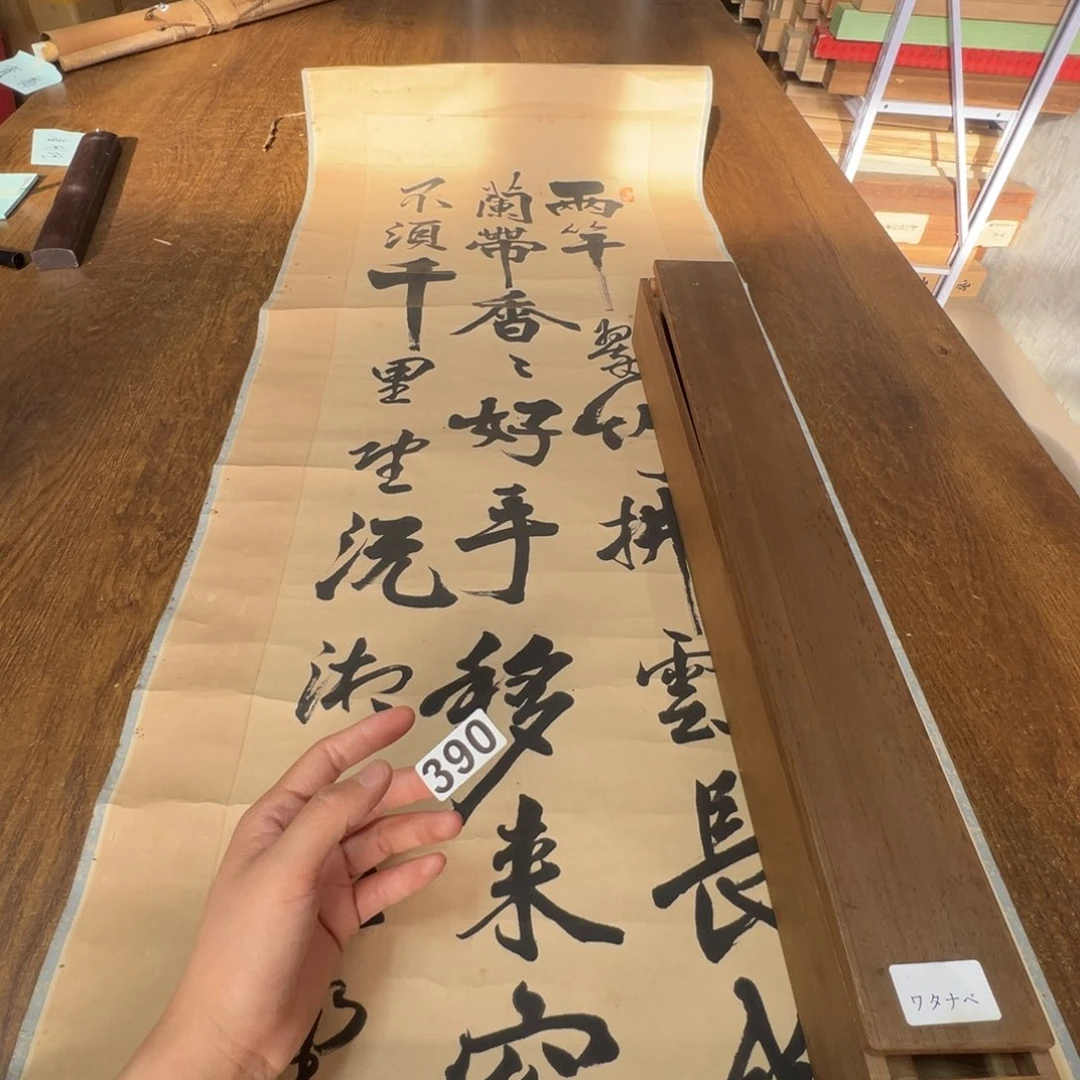 兩竿翠竹拂雲長
蘭帶香〻好手移来窓
不須千里望沅湘
390
ワタナベ